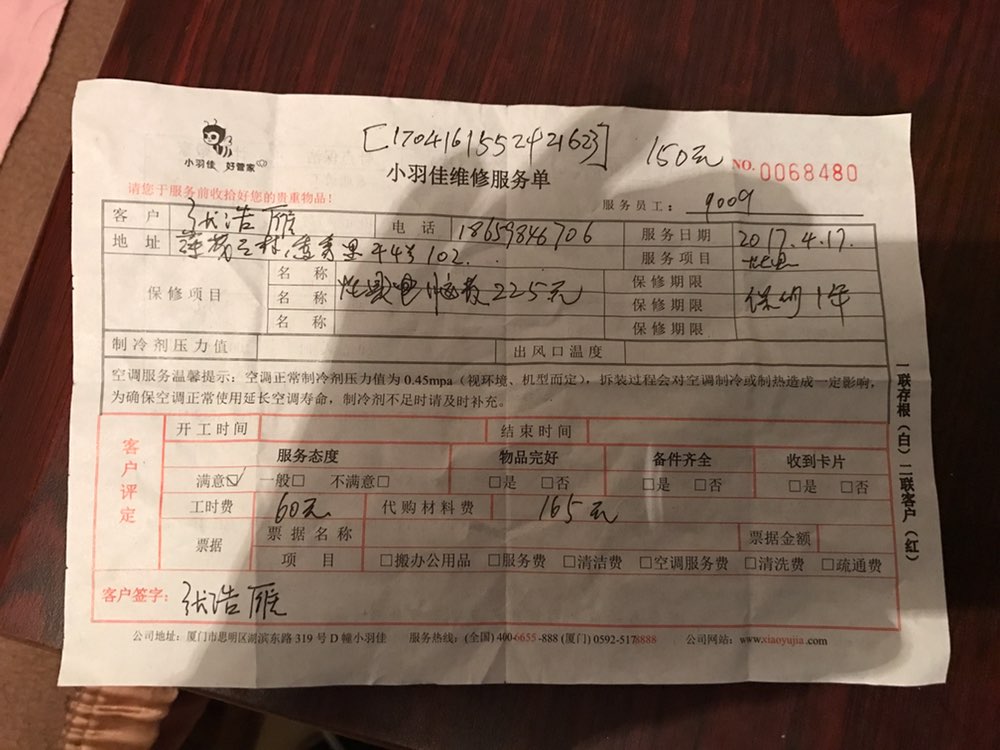 [1704161552421623] 150元
小羽佳 好管家
小羽佳维修服务单
NO.0068480
请您于服务前收拾好您的贵重物品!
服务员工: 9009
客 户 张浩雁 电 话 18659846706 服务日期 2017.4.17.
地 址 102. 服务项目
保修项目 名 称 保修期限
名 称 225元 保修期限 保修1年
名 称 保修期限
制冷剂压力值 出风口温度
空调服务温馨提示:空调正常制冷剂压力值为0.45mpa(视环境、机型而定),拆装过程会对空调制冷或制热造成一定影响,
为确保空调正常使用延长空调寿命,制冷剂不足时请及时补充。
客户评定
开工时间 结束时间
服务态度 物品完好 备件齐全 收到卡片
满意☑ 一般□ 不满意□ □是 □否 □是 □否 □是 □否
工时费 60元 代购材料费 165元
票据 票据名称 票据金额
项 目 □搬办公用品 □服务费 □清洁费 □空调服务费 □清洗费 □疏通费
客户签字: 张浩雁
公司地址:厦门市思明区湖滨东路319号D幢小羽佳 服务热线:(全国)400-6655-888(厦门)0592-5178888 公司网站:www.xiaoyujia.com
一联存根(白)二联客户(红)